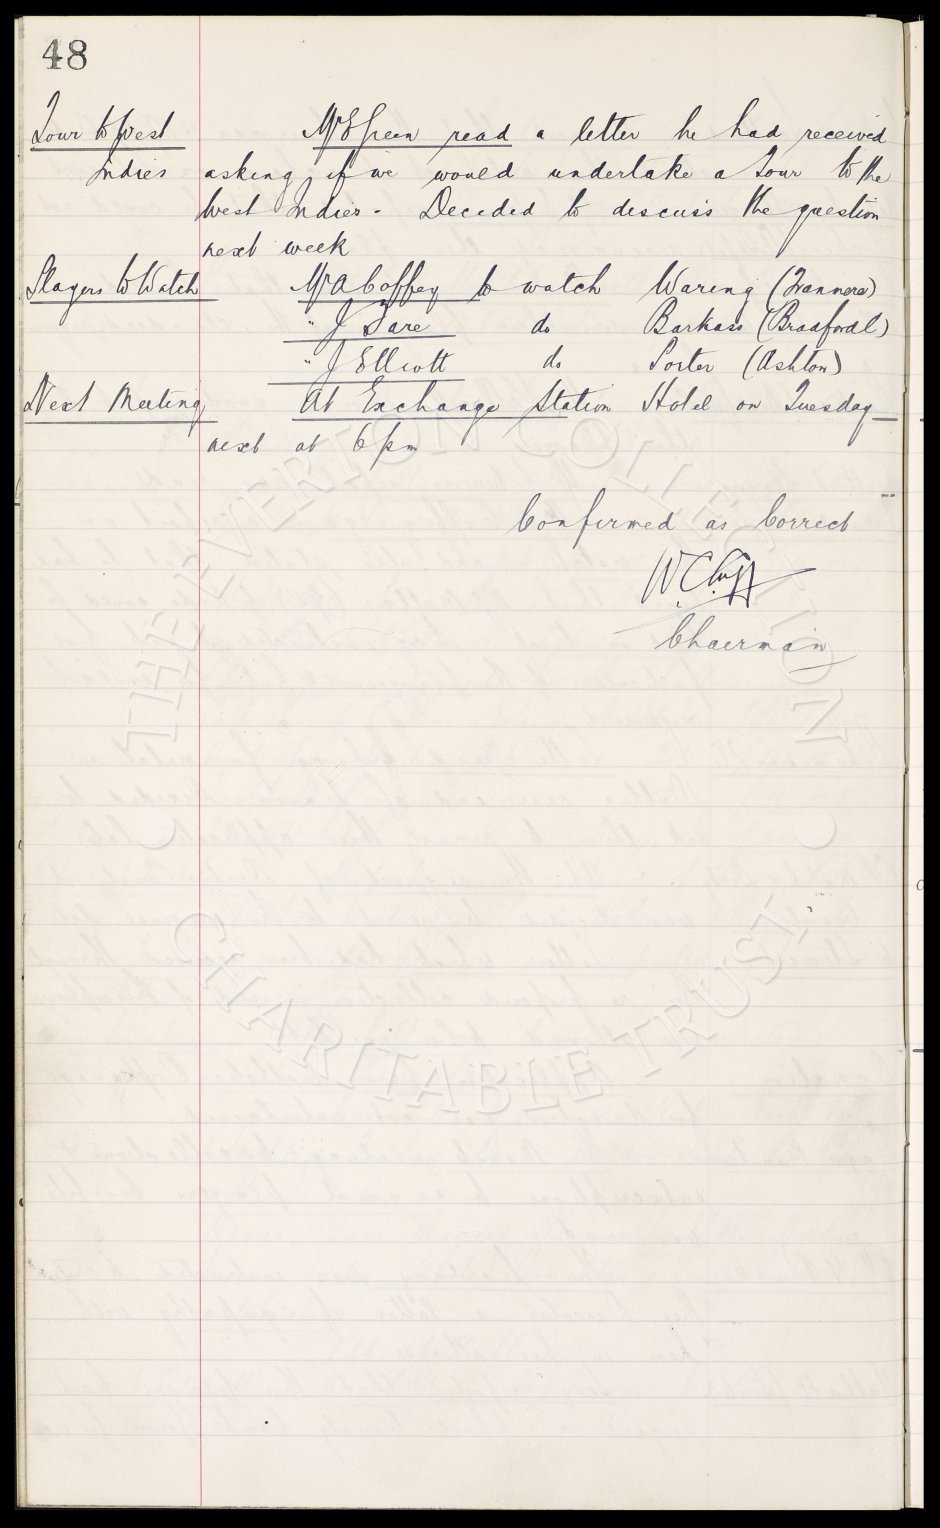 48
Tour to West Mr E Green read a letter he had received
Indies asking if we would undertake a Tour to the
West Indies. Decided to discuss the question
next week
Players to Watch Mr A Coffey to watch Waring (Tranmere)
" J Sare do Barkass (Bradford C)
" J Elliott do Porter (Ashton)
Next Meeting At Exchange Station Hotel on Tuesday
next at 6 pm
Confirmed as Correct
W. C. Cuff
Chairman
THE EVERTON COLLECTION
CHARITABLE TRUST